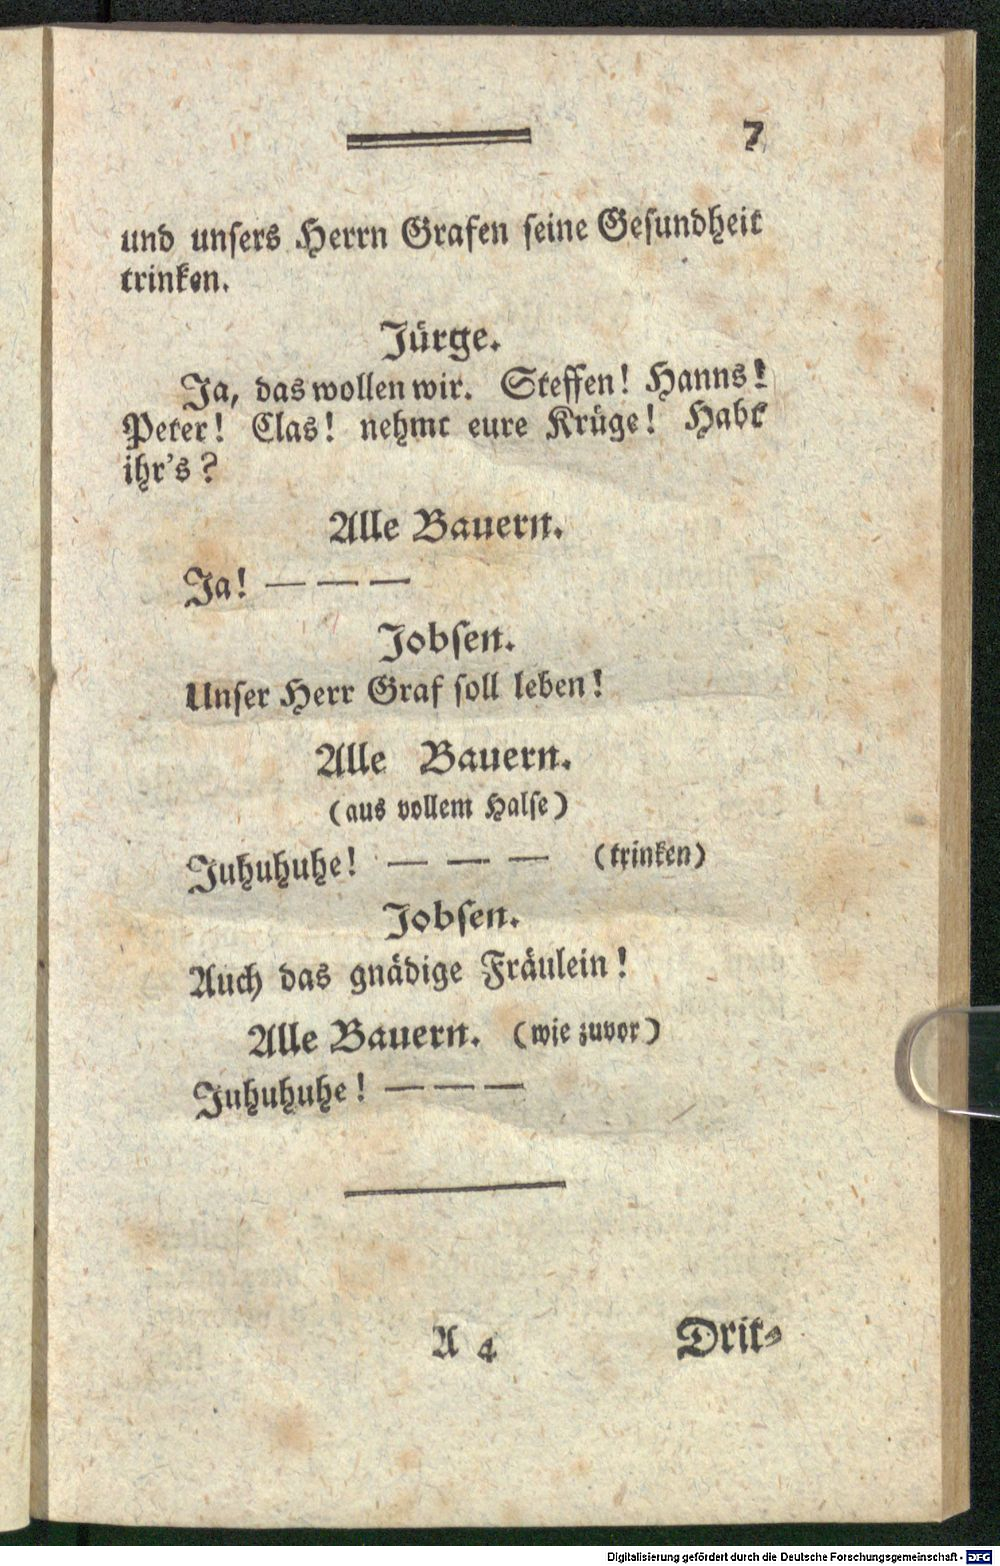 7
und unsers Herrn Grafen seine Gesundheit
trinken.
Jürge.
Ja, das wollen wir. Steffen! Hanns!
Peter! Clas! nehmt eure Krüge! Habt
ihr's?
Alle Bauern.
Ja! — — —
Jobsen.
Unser Herr Graf soll leben!
Alle Bauern.
(aus vollem Halse)
Juhuhuhe! — — — (trinken)
Jobsen.
Auch das gnädige Fräulein!
Alle Bauern. (wie zuvor)
Juhuhuhe! — — —
A 4 Drit-
Digitalisierung gefördert durch die Deutsche Forschungsgemeinschaft - DFG